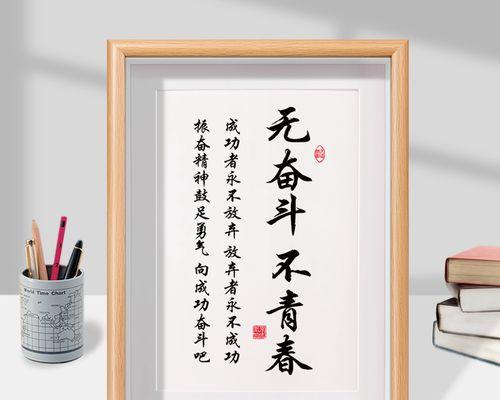 无奋斗 不青春
成功者永不放弃 放弃者永不成功
振奋精神鼓足勇气 向成功奋斗吧
World Time Chart